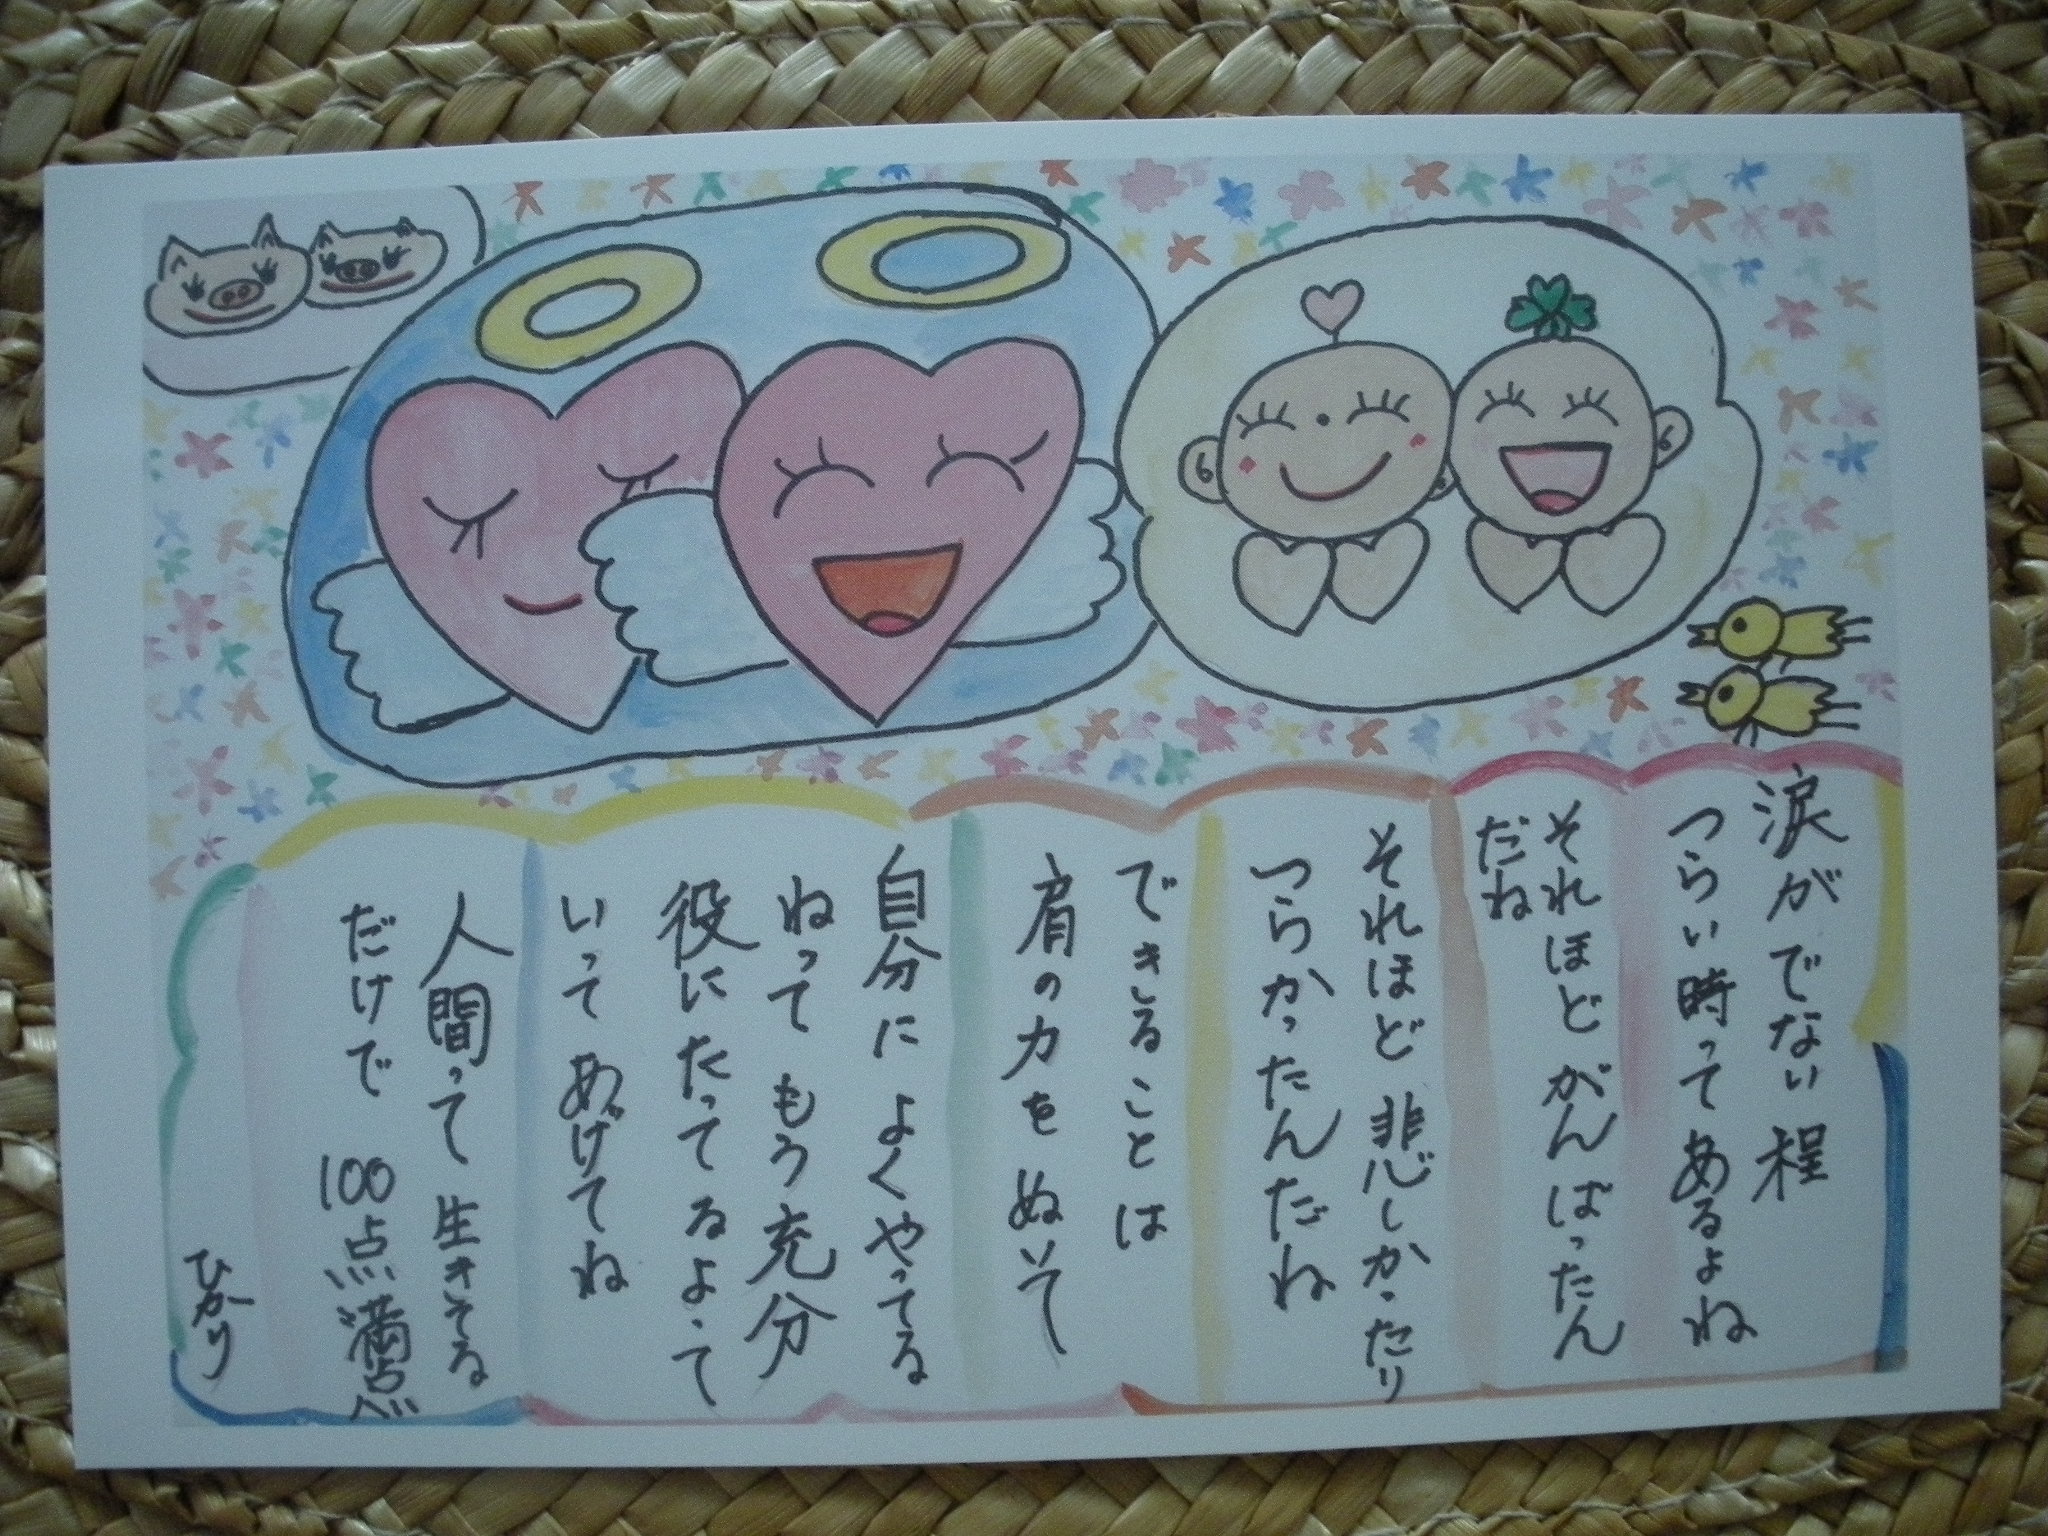 涙がでない程
つらい時ってあるよね
それほどがんばったん
だね
それほど悲しかったり
つらかったんだね
できることは
肩の力をぬいて
自分によくやってる
ねってもう充分
役にたってるよって
いってあげてね
人間って生きてる
だけで100点満点
ひかり